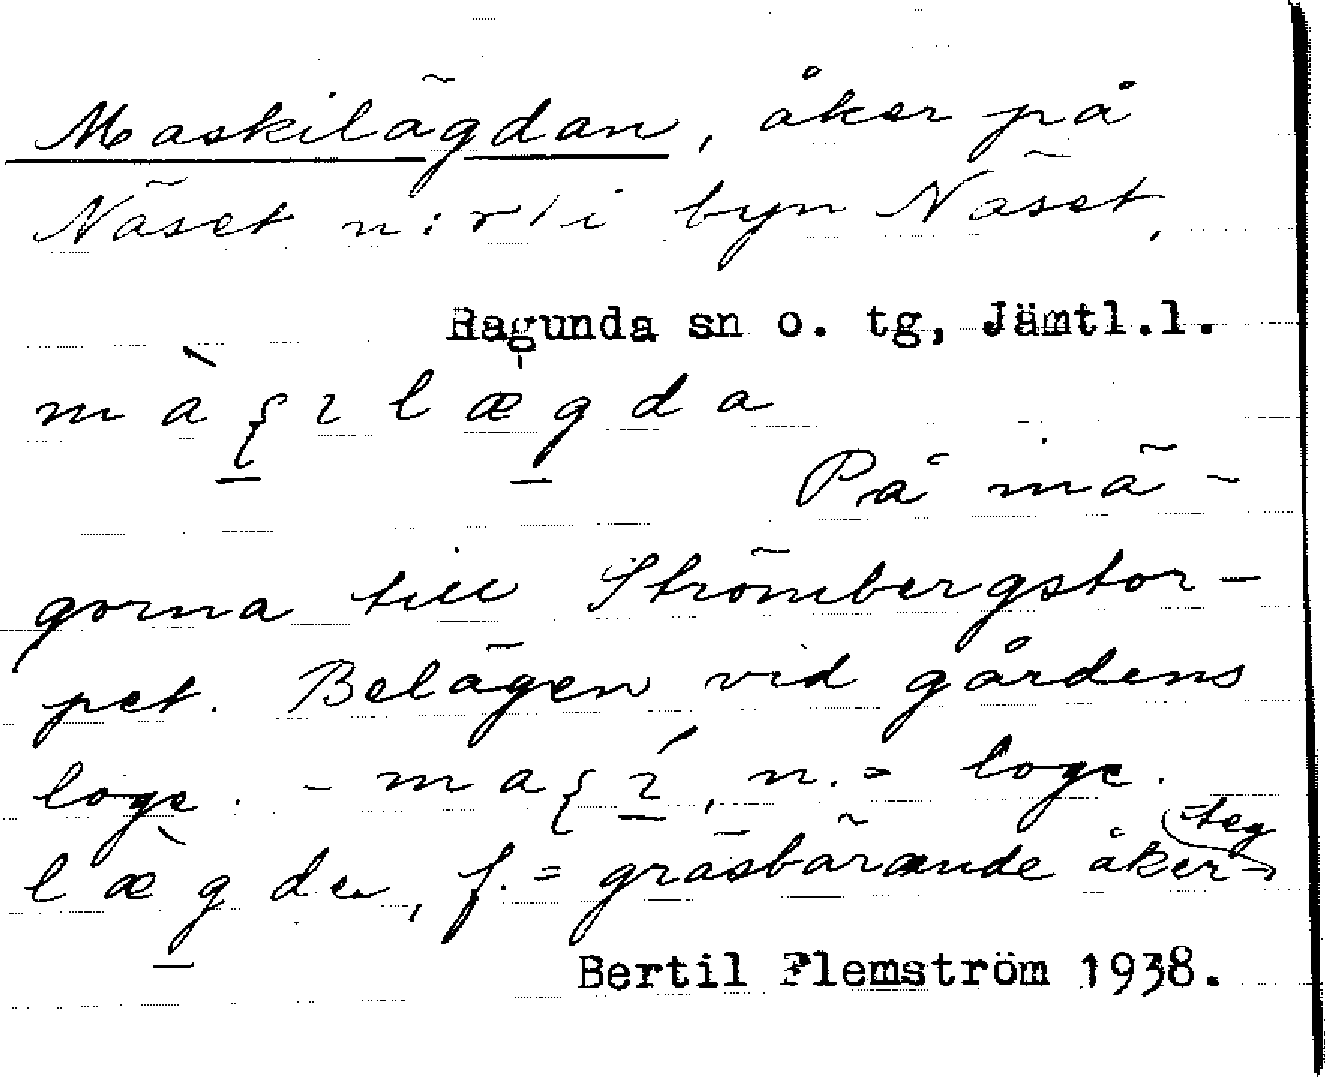 Maskilägdan, åker på
Näset n:r 1 i byn Näset,
Ragunda sn o. tg, Jämtl.l.
På mä-
gorna till Strömbergstor-
pet. Belägen vid gårdens
loge. – n. = loge.
f. = gräsbärande åker-
teg
Bertil Flemström 1938.